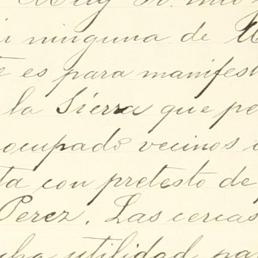 Muy Sr. mio
i ninguna de
es para manifest
la Sierra que pe
ocupado vecinos
ta con pretesto de
Perez. Las cercas
utilidad pa